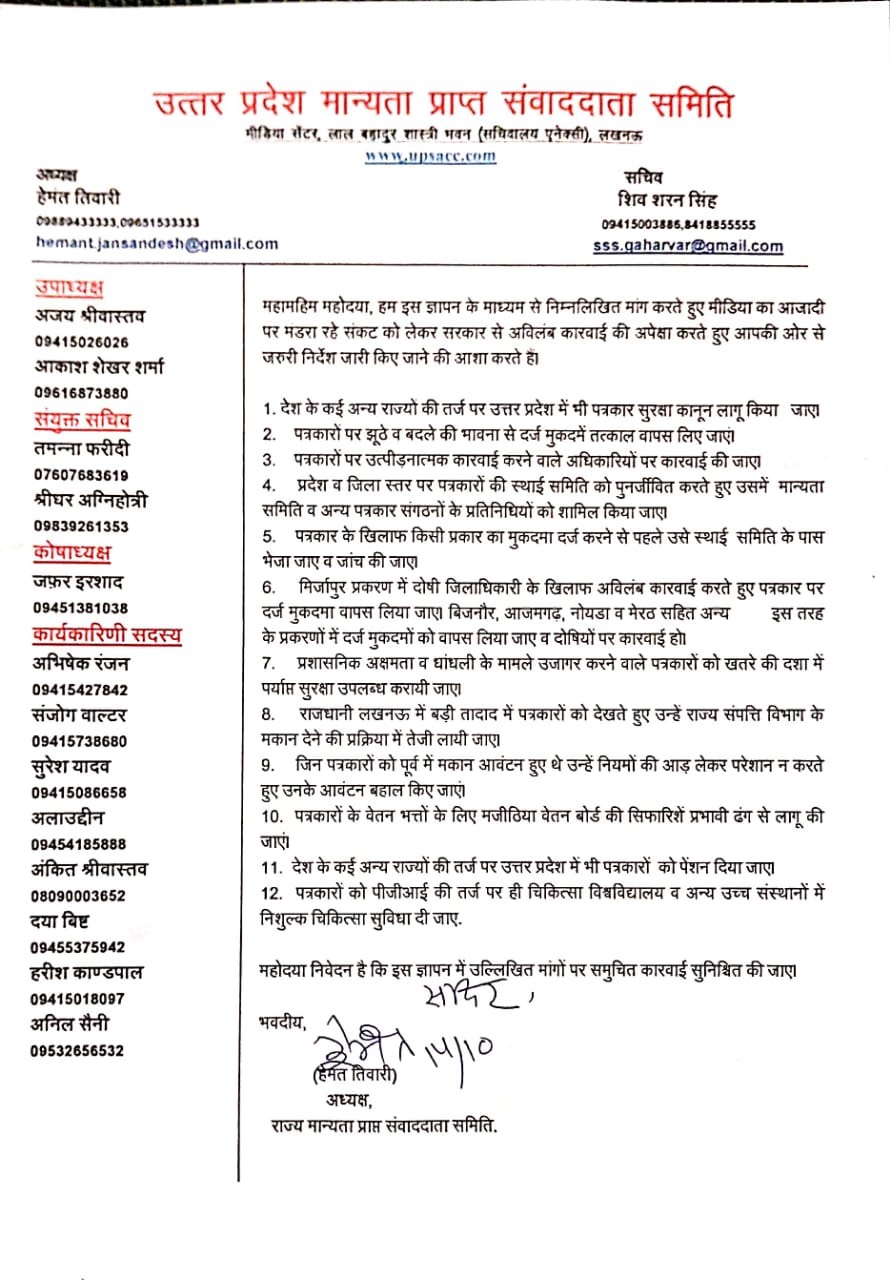 उत्तर प्रदेश मान्यता प्राप्त संवाददाता समिति
मीडिया सेंटर, लाल बहादुर शास्त्री भवन (सचिवालय एनेक्सी), लखनऊ
www.upsacc.com
अध्यक्ष
हेमंत तिवारी
09889433333,09651533333
hemant.jansandesh@gmail.com
सचिव
शिव शरन सिंह
09415003886,8418855555
sss.gaharvar@gmail.com
उपाध्यक्ष
अजय श्रीवास्तव
09415026026
आकाश शेखर शर्मा
09616873880
संयुक्त सचिव
तमन्ना फरीदी
07607683619
श्रीधर अग्निहोत्री
09839261353
कोषाध्यक्ष
जफ़र इरशाद
09451381038
कार्यकारिणी सदस्य
अभिषेक रंजन
09415427842
संजोग वाल्टर
09415738680
सुरेश यादव
09415086658
अलाउद्दीन
09454185888
अंकित श्रीवास्तव
08090003652
दया बिष्ट
09455375942
हरीश काण्डपाल
09415018097
अनिल सैनी
09532656532
महामहिम महोदया, हम इस ज्ञापन के माध्यम से निम्नलिखित मांग करते हुए मीडिया का आजादी
पर मडरा रहे संकट को लेकर सरकार से अविलंब कारवाई की अपेक्षा करते हुए आपकी ओर से
जरुरी निर्देश जारी किए जाने की आशा करते हैं।
1. देश के कई अन्य राज्यों की तर्ज पर उत्तर प्रदेश में भी पत्रकार सुरक्षा कानून लागू किया जाए।
2. पत्रकारों पर झूठे व बदले की भावना से दर्ज मुकदमें तत्काल वापस लिए जाएं।
3. पत्रकारों पर उत्पीड़नात्मक कारवाई करने वाले अधिकारियों पर कारवाई की जाए।
4. प्रदेश व जिला स्तर पर पत्रकारों की स्थाई समिति को पुनर्जीवित करते हुए उसमें मान्यता
समिति व अन्य पत्रकार संगठनों के प्रतिनिधियों को शामिल किया जाए।
5. पत्रकार के खिलाफ किसी प्रकार का मुकदमा दर्ज करने से पहले उसे स्थाई समिति के पास
भेजा जाए व जांच की जाए।
6. मिर्जापुर प्रकरण में दोषी जिलाधिकारी के खिलाफ अविलंब कारवाई करते हुए पत्रकार पर
दर्ज मुकदमा वापस लिया जाए। बिजनौर, आजमगढ़, नोयडा व मेरठ सहित अन्य इस तरह
के प्रकरणों में दर्ज मुकदमों को वापस लिया जाए व दोषियों पर कारवाई हो।
7. प्रशासनिक अक्षमता व धांधली के मामले उजागर करने वाले पत्रकारों को खतरे की दशा में
पर्याप्त सुरक्षा उपलब्ध करायी जाए।
8. राजधानी लखनऊ में बड़ी तादाद में पत्रकारों को देखते हुए उन्हें राज्य संपत्ति विभाग के
मकान देने की प्रक्रिया में तेजी लायी जाए।
9. जिन पत्रकारों को पूर्व में मकान आवंटन हुए थे उन्हें नियमों की आड़ लेकर परेशान न करते
हुए उनके आवंटन बहाल किए जाएं।
10. पत्रकारों के वेतन भत्तों के लिए मजीठिया वेतन बोर्ड की सिफारिशें प्रभावी ढंग से लागू की
जाएं।
11. देश के कई अन्य राज्यों की तर्ज पर उत्तर प्रदेश में भी पत्रकारों को पेंशन दिया जाए।
12. पत्रकारों को पीजीआई की तर्ज पर ही चिकित्सा विश्वविद्यालय व अन्य उच्च संस्थानों में
निशुल्क चिकित्सा सुविधा दी जाए.
महोदया निवेदन है कि इस ज्ञापन में उल्लिखित मांगों पर समुचित कारवाई सुनिश्चित की जाए।
सादर,
भवदीय,
हेमंत 14/10
(हेमंत तिवारी)
अध्यक्ष,
राज्य मान्यता प्राप्त संवाददाता समिति.